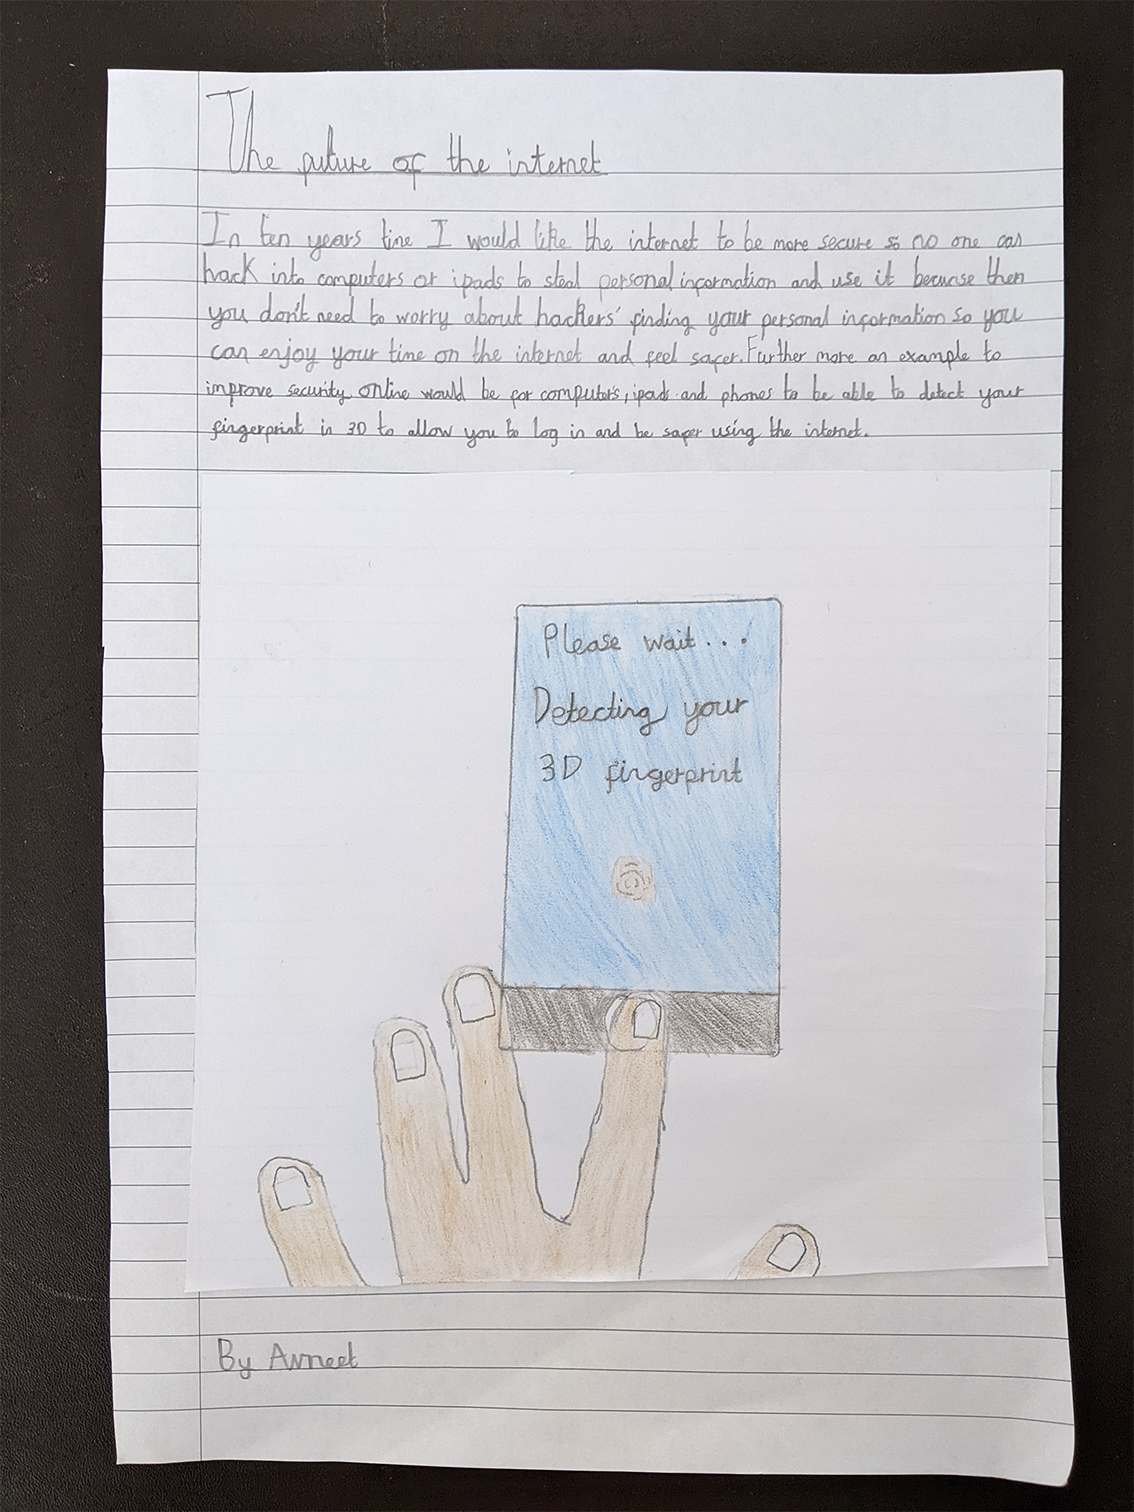 The future of the internet
In ten years time I would like the internet to be more secure so no one can
hack into computers or ipads to steal personal information and use it because then
you don't need to worry about hackers' finding your personal information so you
can enjoy your time on the internet and feel safer. Further more an example to
improve security online would be for computers, ipads and phones to be able to detect your
fingerprint in 3D to allow you to log in and be safer using the internet.
Please wait...
Detecting your
3D fingerprint
By Avneet